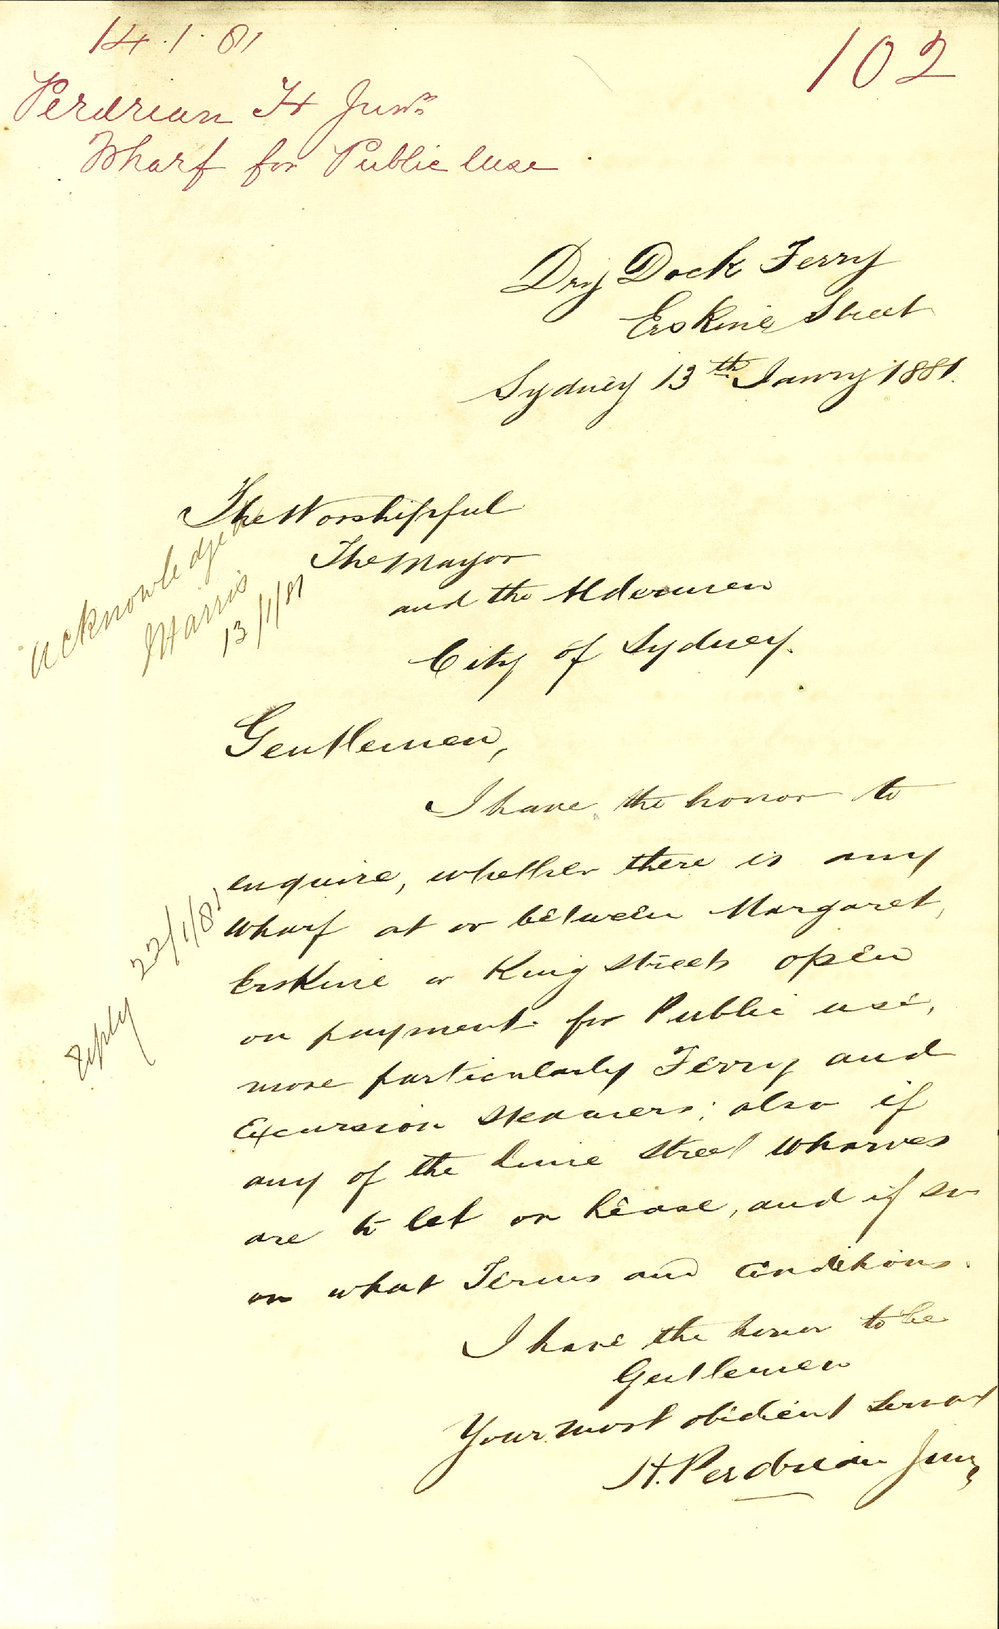 14.1.81
102
Perdriau H Junr
Wharf for Public use
Dry Dock Ferry
Erskine Street
Sydney 13th Janry 1881.
The Worshipful
The Mayor
and the Aldermen
City of Sydney.
acknowledged
Harris
13/1/81
Gentlemen,
I have the honor to
enquire, whether there is any
wharf at or between Margaret,
Erskine or King Streets open
on payment for Public use,
more particularly Ferry and
Excursion Steamers; also if
any of the Lime Street Wharves
are to let on Lease, and if so
on what Terms and Conditions.
reply 22/1/81
I have the honor to be
Gentlemen
Your most obedient Servant
H. Perdriau Junr